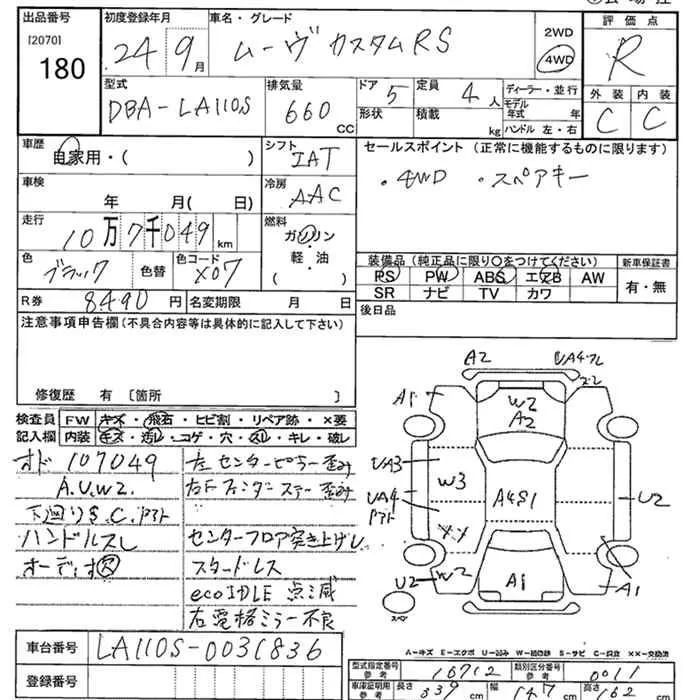 出品番号
[2070]
180
初度登録年月
24 9月
車名・グレード
ムーヴ カスタムRS
2WD
4WD
評価点
R
外装 内装
C C
型式
DBA-LA110S
排気量
660 CC
ドア 5
形状
定員 4 人
積載 kg
ディーラー・並行
モデル年式 年
ハンドル 左・右
車歴
自家用・( )
シフト
IAT
セールスポイント (正常に機能するものに限ります)
・4WD ・スペアキー
車検
年 月( 日)
冷房
AAC
走行
10万7千049 km
燃料
ガソリン
軽・油
色
ブラック
色替
色コード
X07
装備品 (純正品に限り○をつけてください)
新車保証書
PS PW ABS エアB AW
有・無
SR ナビ TV カワ
R券 8490 円
名変期限 月 日
後日品
注意事項申告欄(不具合内容等は具体的に記入して下さい)
修復歴 有 [箇所 ]
検査員
記入欄
FW キズ・飛石・ヒビ割・リペア跡・×要
内装 キズ・汚レ・コゲ・穴・スレ・キレ・破レ
オド 107049
A.U.W2.
下廻りS.C.アト
ハンドルスレ
オーディオ欠
左センターピラー歪み
右Fフェンダーステー歪み
センターフロア突き上げし
スタードレス
eco IDLE 点滅
右電格ミラー不良
A2
UA4フレ
A1
W2
A2
UA3
UA4
アト
W3
A4S1
U2
××
U2
W2
A1
A1
スペア
A-キズ E-エクボ U-凹み W-補修跡 S-サビ C-腐食 ××-交換済
車台番号
LA110S-0031836
登録番号
型式指定番号
参考
16712
類別区分番号
参考
0011
車庫証明用
参考
長さ 339 cm
幅 147 cm
高さ 162 cm